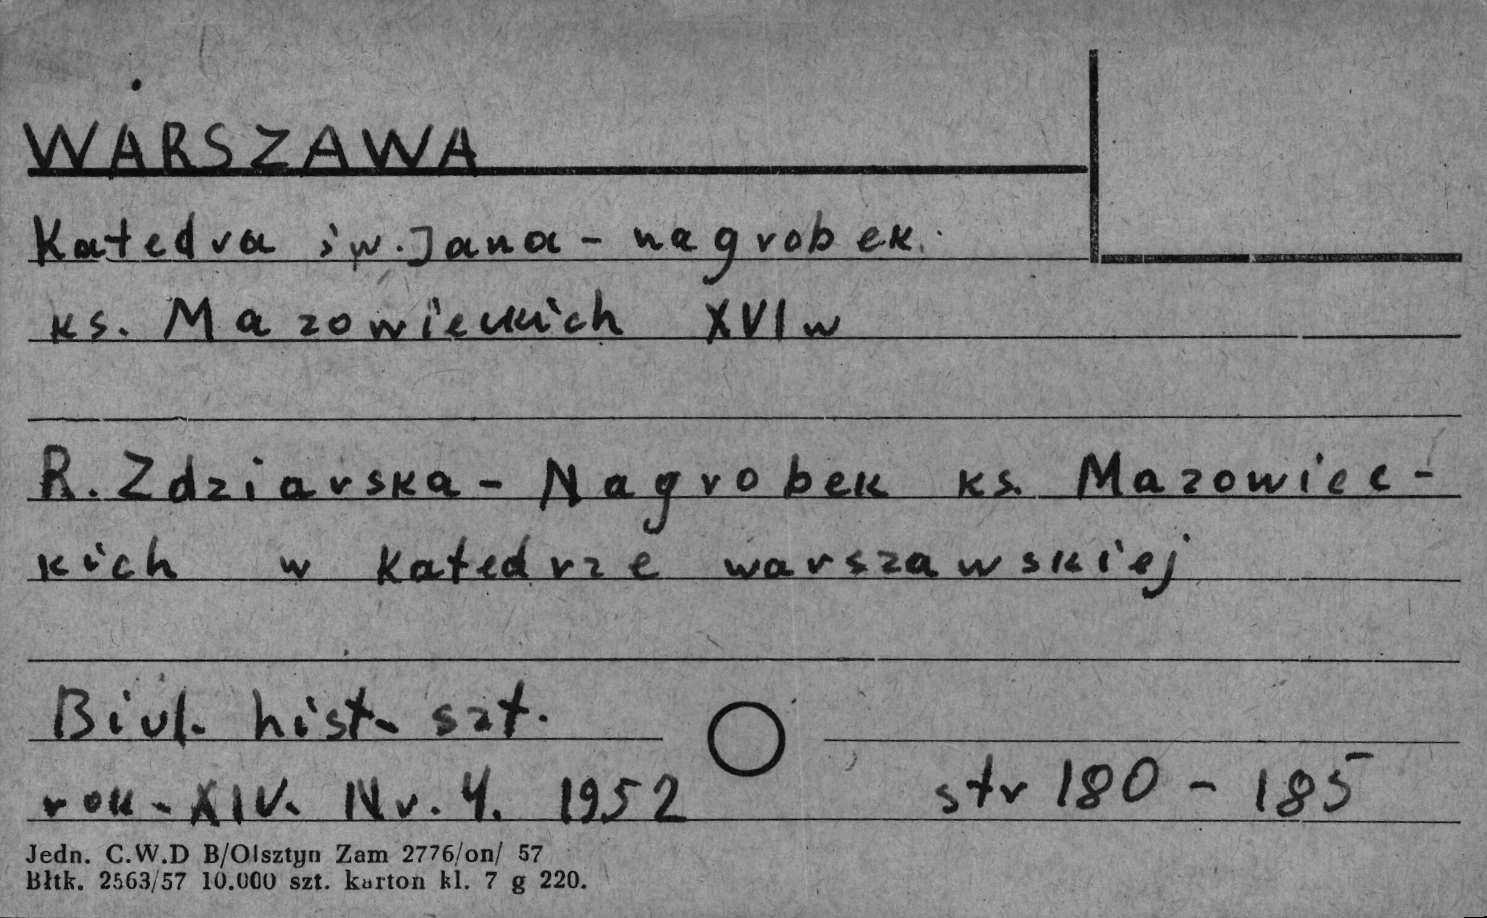 WARSZAWA
Katedra św. Jana - nagrobek
ks. Mazowieckich XVI w
R. Zdziarska - Nagrobek ks. Mazowiec-
kich w katedrze warszawskiej
Biul. hist. szt.
rok - XIV. Nr. 4. 1952 str 180 - 185
Jedn. C.W.D B/Olsztyn Zam 2776/on/ 57
Błtk. 2563/57 10.000 szt. karton kl. 7 g 220.